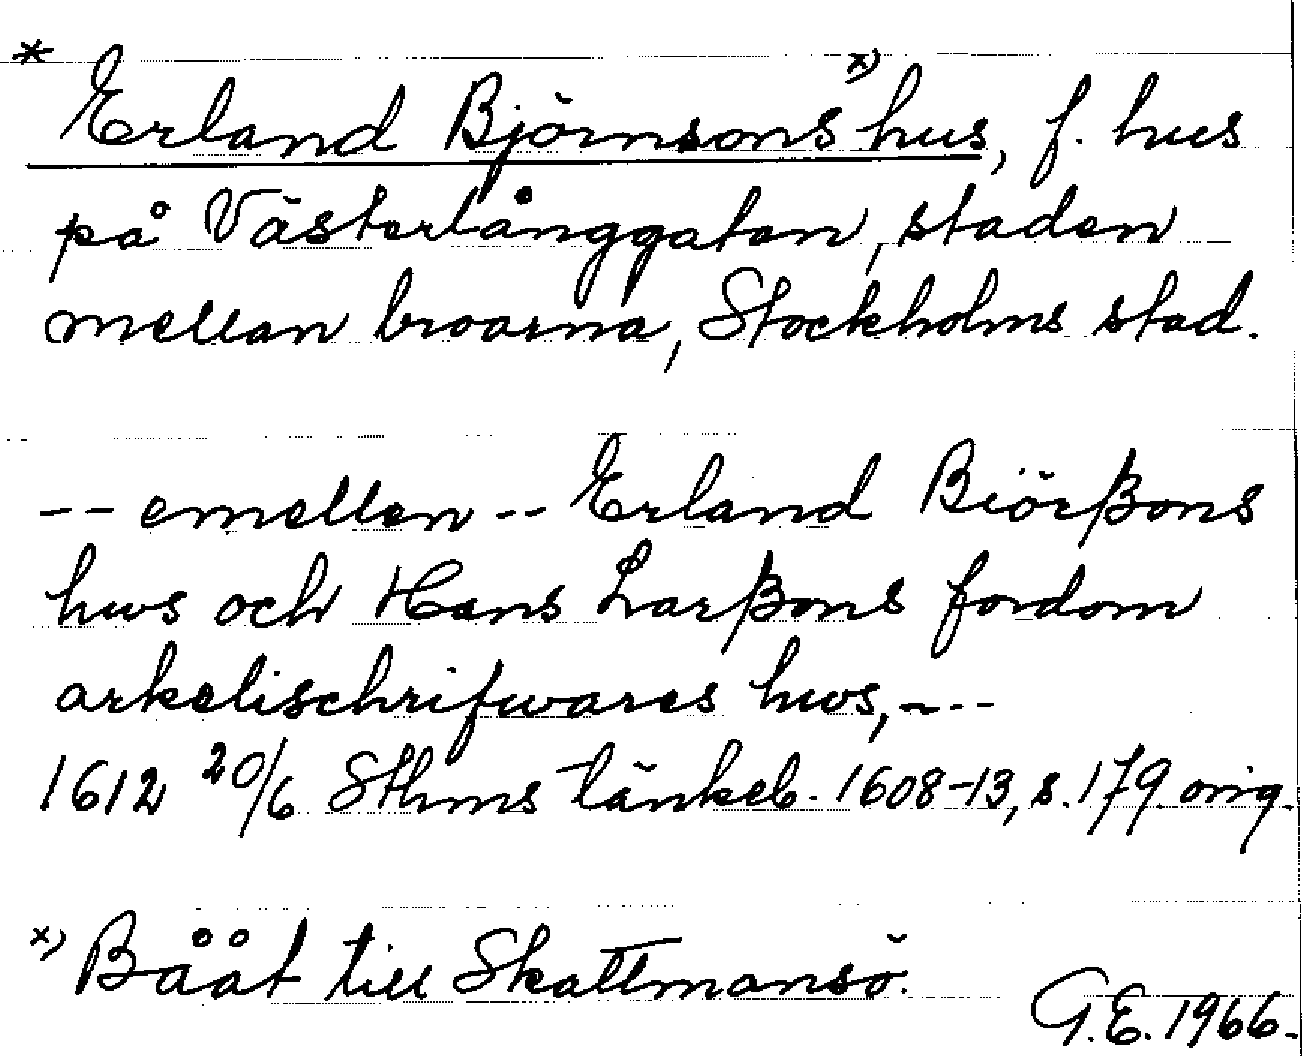 * Erland Björnsons x) hus, f. hus
på Västerlånggatan, staden
mellan broarna, Stockholms stad.
-- emellen -- Erland Biörßons
hws och Hans Larßons fordom
arkelischrifwares hws, ---
1612 20/6 Sthms tänkeb. 1608-13, s. 179. orig.
x) Bååt till Skattmansö.
G.E. 1966.